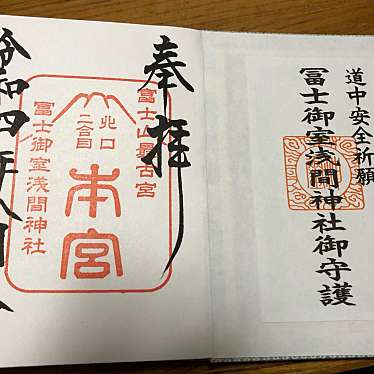 道中安全祈願
冨士御室浅間神社御守護
奉拝
富士山最古宮
北口
二合目
本宮
冨士御室浅間神社
令和四年八月